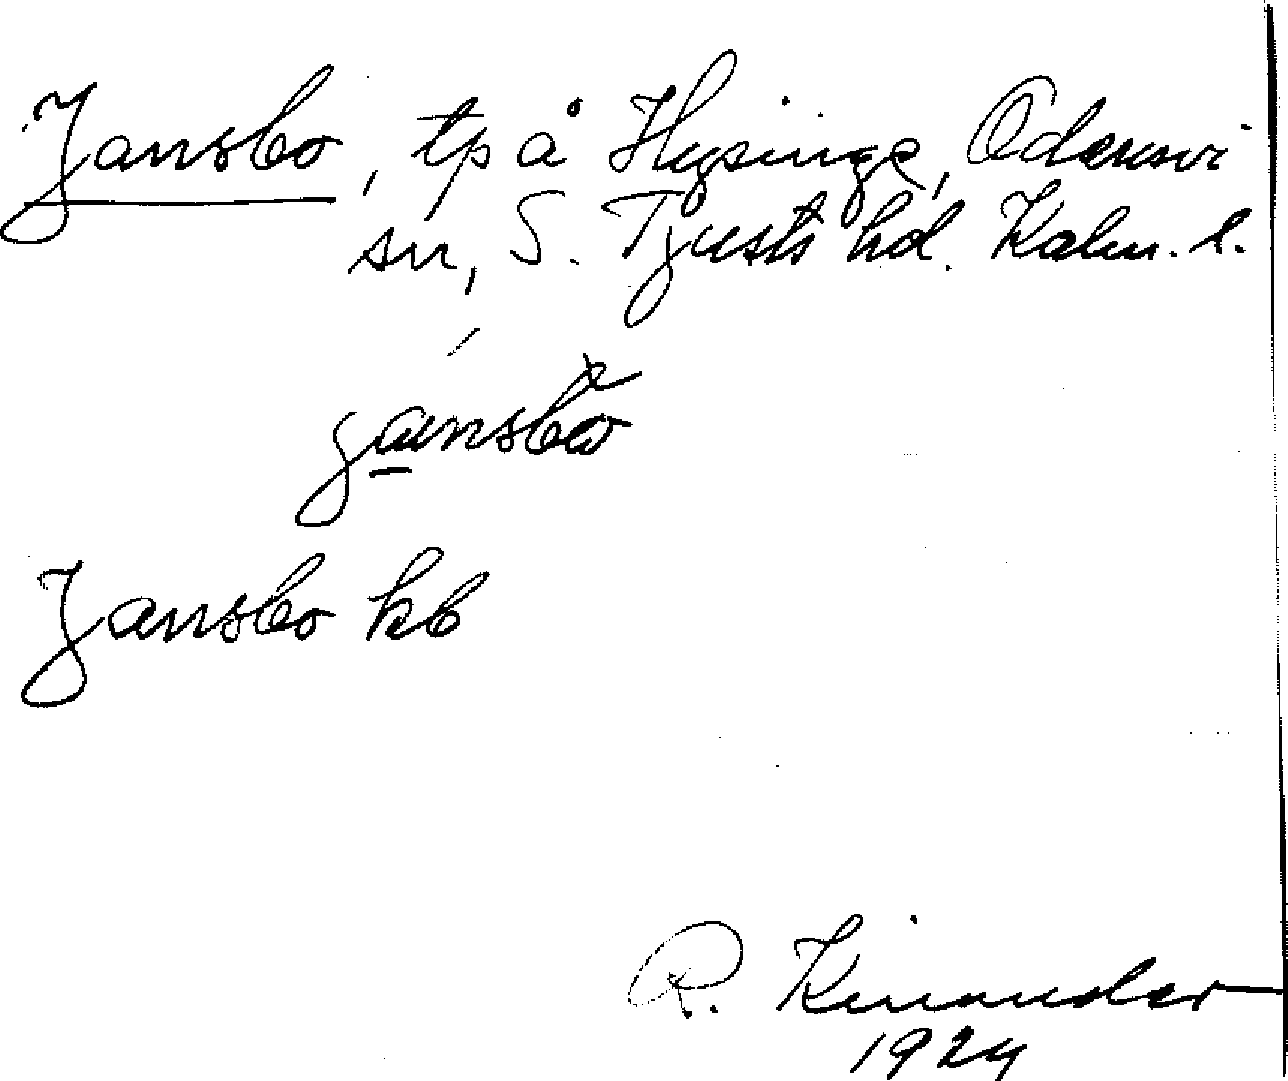 Jansbo, tp å Hysinge, Odensvi
sn, S. Tjusts hd. Kalm. l.
Jansbo kb
R. Kinander
1924